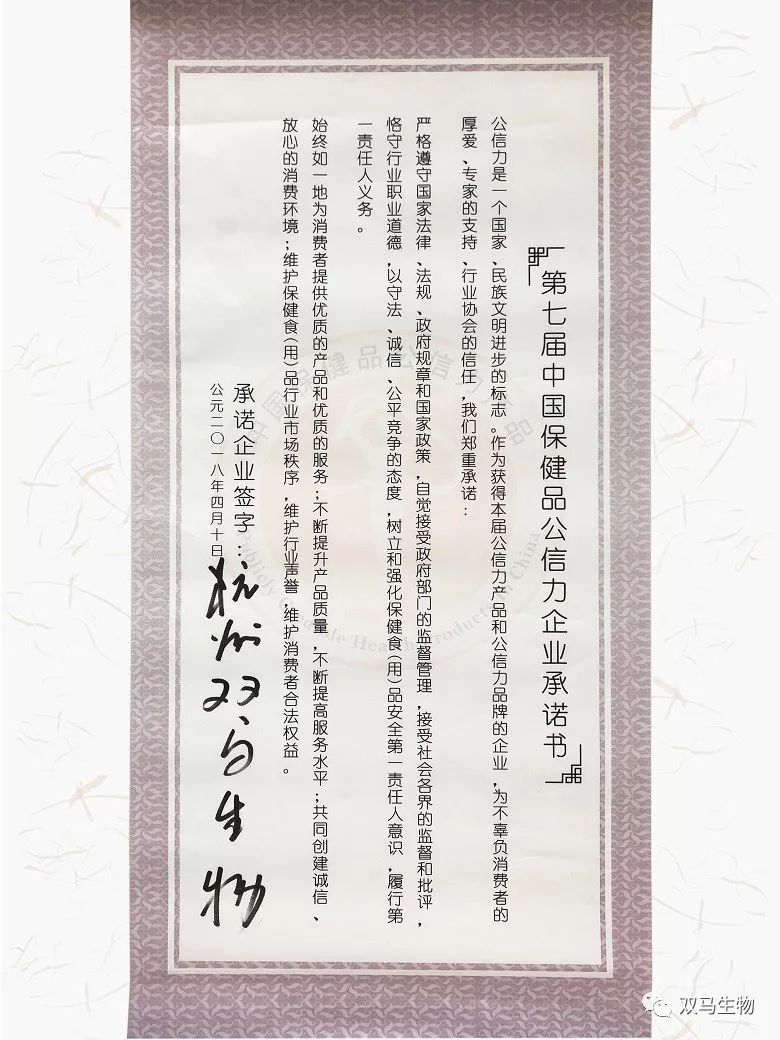 第七届中国保健品公信力企业承诺书
公信力是一个国家、民族文明进步的标志。作为获得本届公信力产品和公信力品牌的企业，为不辜负消费者的
厚爱、专家的支持、行业协会的信任，我们郑重承诺：
严格遵守国家法律、法规、政府规章和国家政策，自觉接受政府部门的监督管理，接受社会各界的监督和批评，
恪守行业职业道德，以守法、诚信、公平竞争的态度，树立和强化保健食(用)品安全第一责任人意识，履行第
一责任人义务。
始终如一地为消费者提供优质的产品和优质的服务；不断提升产品质量，不断提高服务水平；共同创建诚信、
放心的消费环境；维护保健食(用)品行业市场秩序，维护行业声誉，维护消费者合法权益。
承诺企业签字：杭州双马生物
公元二〇一八年四月十日
中国保健品公信力产品
Publicly Credible Health Products in China
双马生物